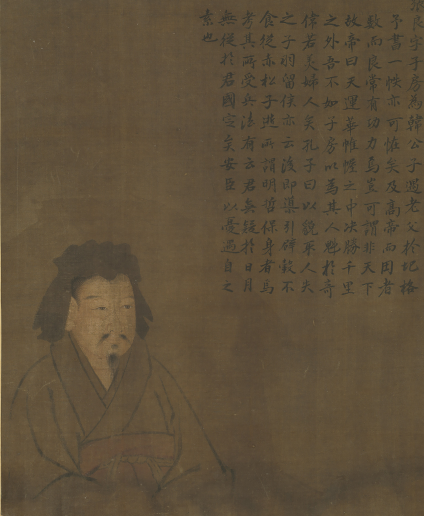 良字子房為韓公子遇老父於圯
予書一帙亦可怪矣及高帝而困者
數而良常有功力焉豈可謂非天下
故帝曰夫運籌帷幄之中决勝千里
之外吾不如子房以為其人魁於奇
偉若美婦人矣孔子曰以貌取人失
之子羽留侯亦云後即導引辟穀不
食從赤松子遊所謂明哲保身者焉
考其所受兵法有云君無疑於日月
無從於君國定矣安臣以憂過自之
素也